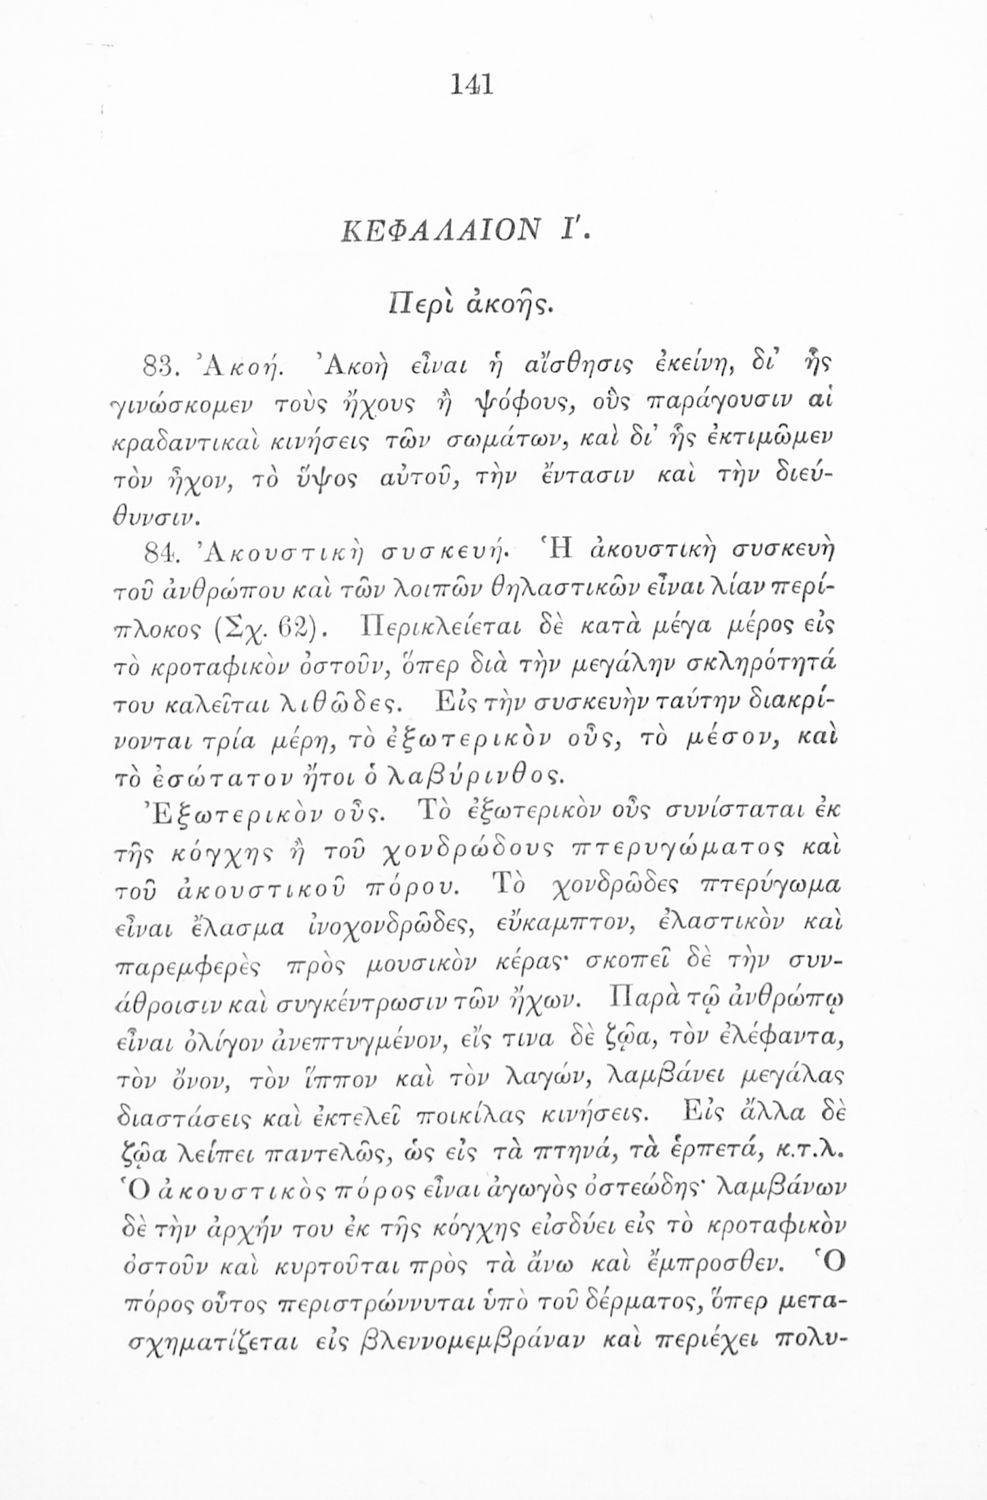 141
ΚΕΦΑΛΑΙΟΝ Ι΄.
Περὶ ἀκοῆς.
83. Ἀκοή. Ἀκοὴ εἶναι ἡ αἴσθησις ἐκείνη, δι’ ἧς
γινώσκομεν τοὺς ἤχους ἢ ψόφους, οὓς παράγουσιν αἱ
κραδαντικαὶ κινήσεις τῶν σωμάτων, καὶ δι’ ἧς ἐκτιμῶμεν
τὸν ἦχον, τὸ ὕψος αὐτοῦ, τὴν ἔντασιν καὶ τὴν διεύ-
θυνσιν.
84. Ἀκουστικὴ συσκευή. Ἡ ἀκουστικὴ συσκευὴ
τοῦ ἀνθρώπου καὶ τῶν λοιπῶν θηλαστικῶν εἶναι λίαν περί-
πλοκος (Σχ. 62). Περικλείεται δὲ κατὰ μέγα μέρος εἰς
τὸ κροταφικὸν ὀστοῦν, ὅπερ διὰ τὴν μεγάλην σκληρότητά
του καλεῖται λιθῶδες. Εἰς τὴν συσκευὴν ταύτην διακρί-
νονται τρία μέρη, τὸ ἐξωτερικὸν οὖς, τὸ μέσον, καὶ
τὸ ἐσώτατον ἤτοι ὁ λαβύρινθος.
Ἐξωτερικὸν οὖς. Τὸ ἐξωτερικὸν οὖς συνίσταται ἐκ
τῆς κόγχης ἢ τοῦ χονδρώδους πτερυγώματος καὶ
τοῦ ἀκουστικοῦ πόρου. Τὸ χονδρῶδες πτερύγωμα
εἶναι ἔλασμα ἰνοχονδρῶδες, εὔκαμπτον, ἐλαστικὸν καὶ
παρεμφερὲς πρὸς μουσικὸν κέρας· σκοπεῖ δὲ τὴν συν-
άθροισιν καὶ συγκέντρωσιν τῶν ἤχων. Παρὰ τῷ ἀνθρώπῳ
εἶναι ὀλίγον ἀνεπτυγμένον, εἴς τινα δὲ ζῷα, τὸν ἐλέφαντα,
τὸν ὄνον, τὸν ἵππον καὶ τὸν λαγών, λαμβάνει μεγάλας
διαστάσεις καὶ ἐκτελεῖ ποικίλας κινήσεις. Εἰς ἄλλα δὲ
ζῷα λείπει παντελῶς, ὡς εἰς τὰ πτηνά, τὰ ἑρπετά, κ.τ.λ.
Ὁ ἀκουστικὸς πόρος εἶναι ἀγωγὸς ὀστεώδης· λαμβάνων
δὲ τὴν ἀρχήν του ἐκ τῆς κόγχης εἰσδύει εἰς τὸ κροταφικὸν
ὀστοῦν καὶ κυρτοῦται πρὸς τὰ ἄνω καὶ ἔμπροσθεν. Ὁ
πόρος οὗτος περιστρώννυται ὑπὸ τοῦ δέρματος, ὅπερ μετα-
σχηματίζεται εἰς βλεννομεμβράναν καὶ περιέχει πολυ-